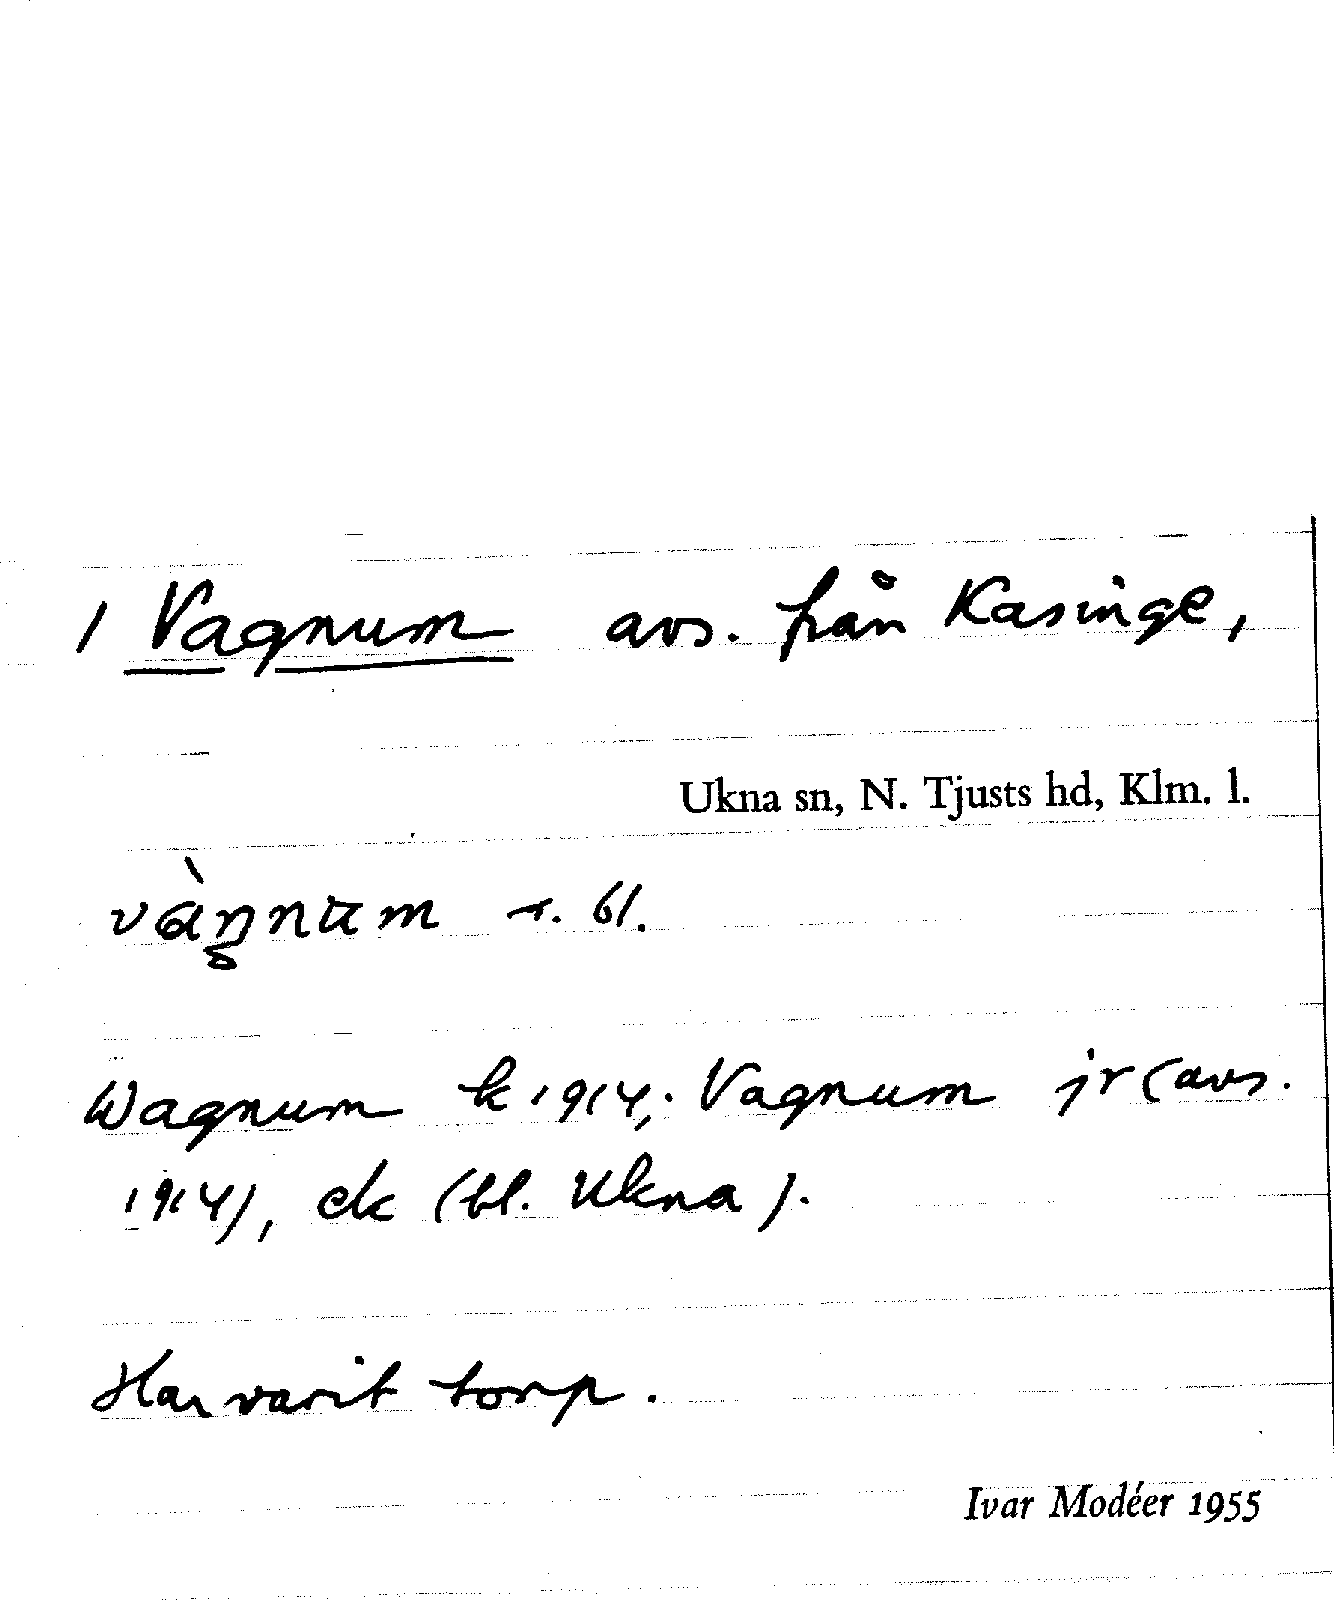 1 Vagnum avs. från Kasinge,
Ukna sn, N. Tjusts hd, Klm. l.
vàŋnum r. bl.
Wagnum k 1914; Vagnum jr (avs.
1914), ek (bl. Ukna).
Har varit torp.
Ivar Modéer 1955